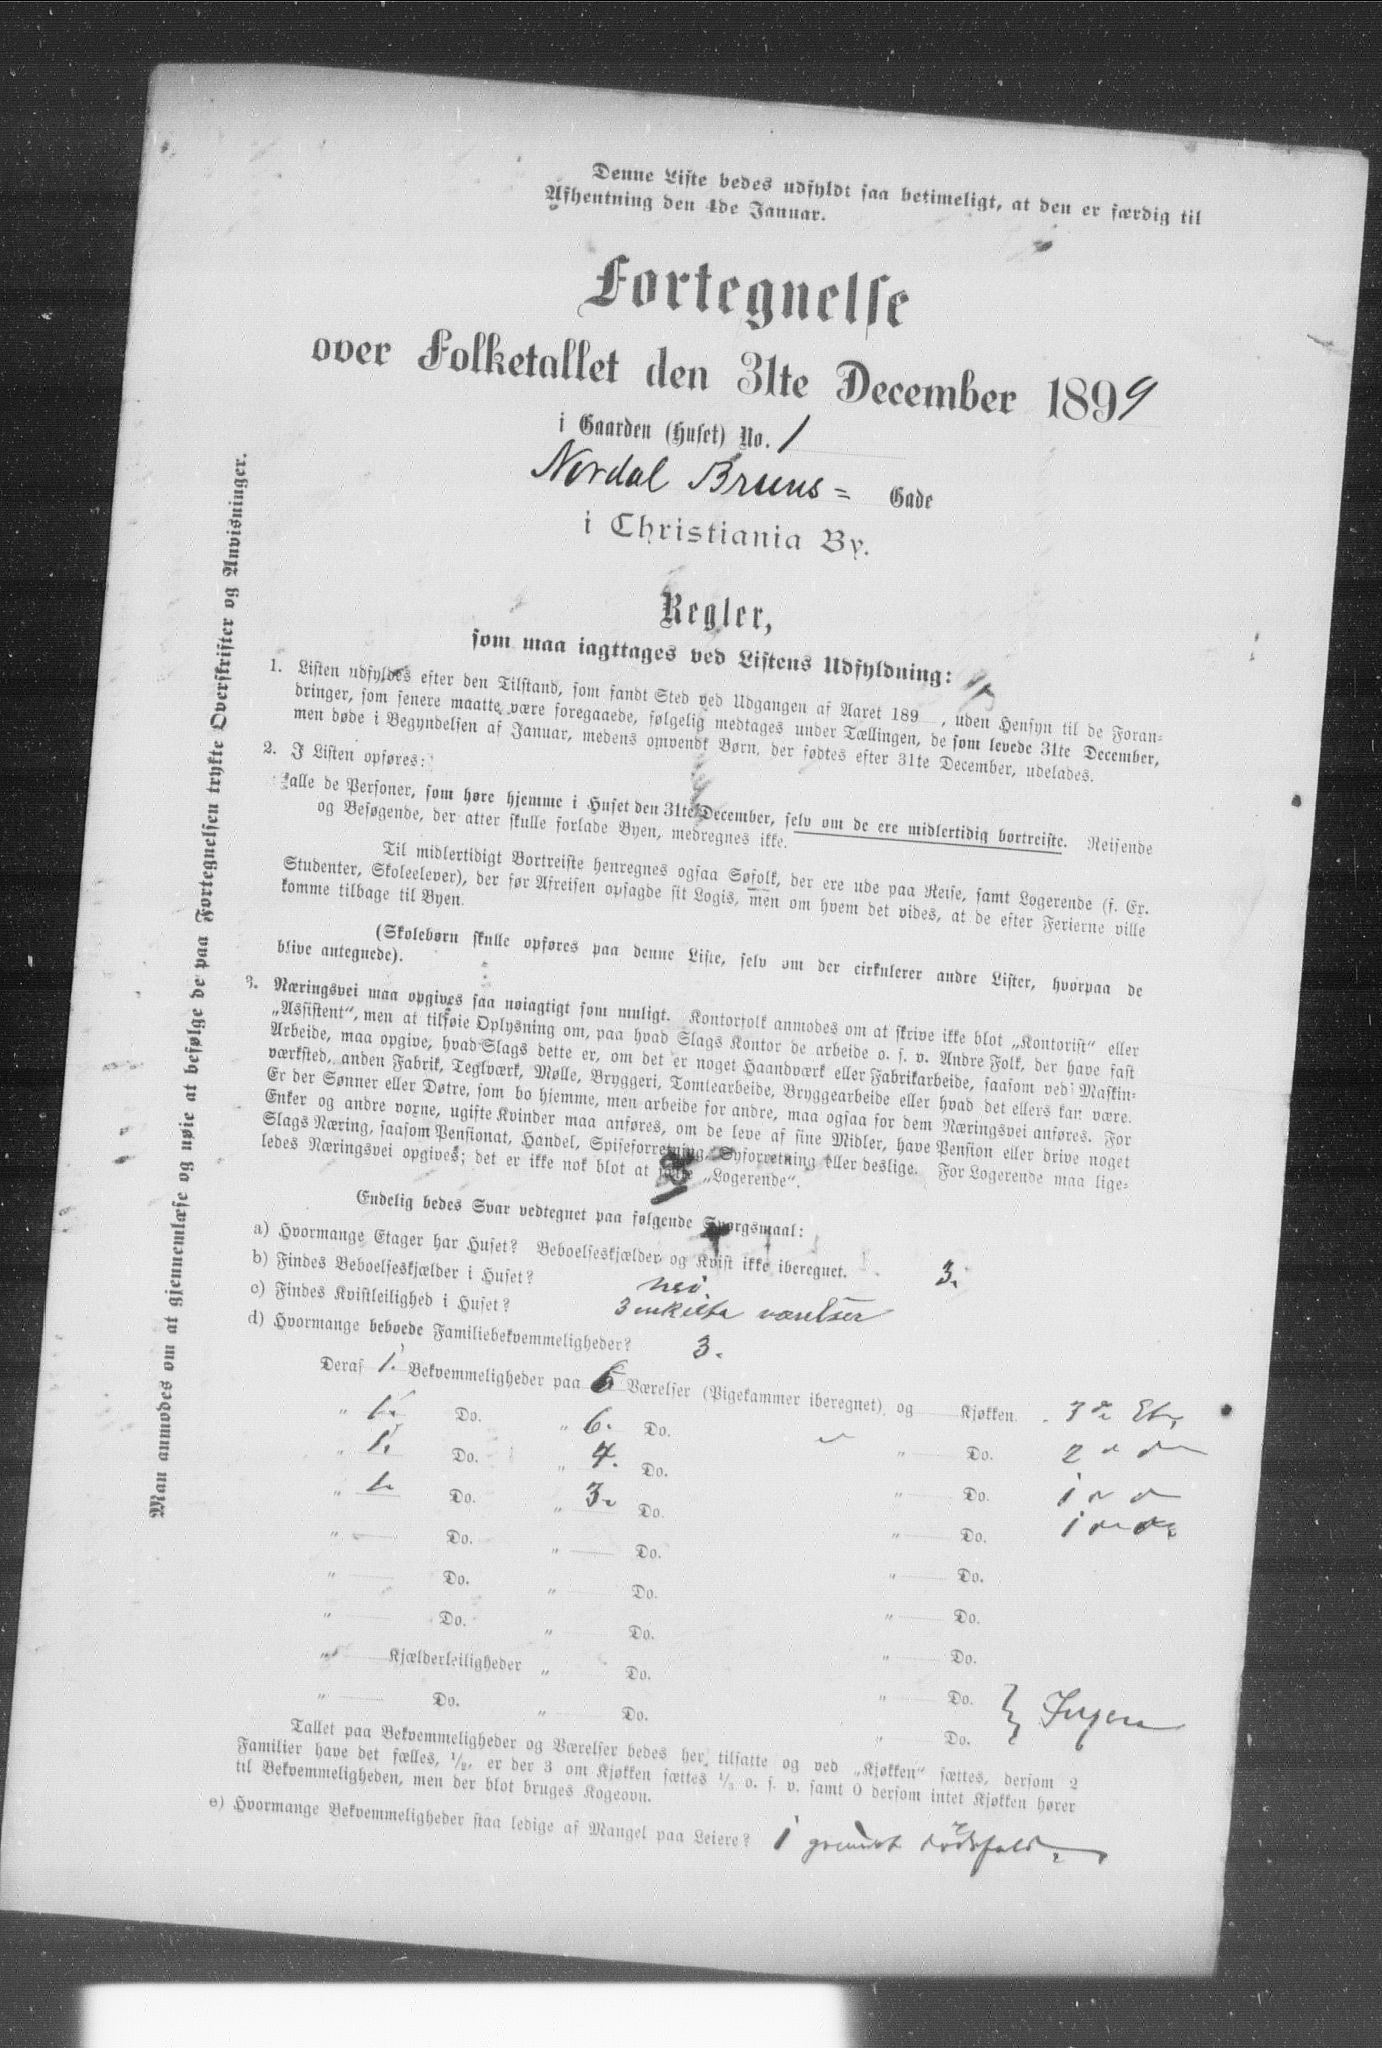 Denne Liste bedes udfyldt saa betimeligt, at den er færdig til
Afhentning den 4de Januar.
Fortegnelse
over Folketallet den 31te December 1899
i Gaarden (Huset) No. 1
Nordal Bruns= Gade
i Christiania By.
Regler,
som maa iagttages ved Listens Udfyldning:
1. Listen udfyldes efter den Tilstand, som fandt Sted ved Udgangen af Aaret 189 , uden Hensyn til de Foran-
dringer, som senere maatte være foregaaede, følgelig medtages under Tællingen, de som levede 31te December,
men døde i Begyndelsen af Januar, medens omvendt Børn, der fødtes efter 31te December, udelades.
2. I Listen opføres:
alle de Personer, som høre hjemme i Huset den 31te December, selv om de ere midlertidig bortreiste. Reisende
og Besøgende, der atter skulle forlade Byen, medregnes ikke.
Til midlertidigt Bortreiste henregnes ogsaa Søfolk, der ere ude paa Reise, samt Logerende (f. Ex.
Studenter, Skoleelever), der før Afreisen opsagde sit Logis, men om hvem det vides, at de efter Ferierne ville
komme tilbage til Byen.
(Skolebørn skulle opføres paa denne Liste, selv om der cirkulerer andre Lister, hvorpaa de
blive antegnede).
3. Næringsvei maa opgives saa nøiagtigt som muligt. Kontorfolk anmodes om at skrive ikke blot „Kontorist“ eller
„Assistent“, men at tilføie Oplysning om, paa hvad Slags Kontor de arbeide o. s. v. Andre Folk, der have fast
Arbeide, maa opgive, hvad Slags dette er, om det er noget Haandværk eller Fabrikarbeide, saasom ved Maskin-
værksted, anden Fabrik, Teglværk, Mølle, Bryggeri, Tomtearbeide, Bryggearbeide eller hvad det ellers kan være.
Er der Sønner eller Døtre, som bo hjemme, men arbeide for andre, maa ogsaa for dem Næringsvei anføres. For
Enker og andre voxne, ugifte Kvinder maa anføres, om de leve af sine Midler, have Pension eller drive noget
Slags Næring, saasom Pensionat, Handel, Spiseforretning, Syforretning eller deslige. For Logerende maa lige-
ledes Næringsvei opgives; det er ikke nok blot at sætte „Logerende“.
Endelig bedes Svar vedtegnet paa følgende Spørgsmaal:
a) Hvormange Etager har Huset? Beboelseskjælder og Kvist ikke iberegnet. 3.
b) Findes Beboelseskjælder i Huset? nei.
c) Findes Kvistleilighed i Huset? 3 enkelte værelser
d) Hvormange beboede Familiebekvemmeligheder? 3.
Deraf 1. Bekvemmeligheder paa 6 Værelser (Pigekammer iberegnet) og Kjøkken. 3
„ 1. Do. „ 6. Do. „ Do. 2
„ 1. Do. „ 4. Do. „ Do. 1
„ 1. Do. „ 3. Do. „ Do. 1
„ Do. „ Do. „ Do.
„ Do. „ Do. „ Do.
„ Do. „ Do. „ Do.
„ Kjælderleiligheder „ Do. „ Do.
„ Do. „ Do. „ Do. } Ingen
Tallet paa Bekvemmeligheder og Værelser bedes her tilsatte og ved „Kjøkken“ sættes, dersom 2
Familier have det fælles, 1/2, er der 3 om Kjøkken sættes 1/3 o. s. v. samt 0 dersom intet Kjøkken hører
til Bekvemmeligheden, men der blot bruges Kogeovn.
e) Hvormange Bekvemmeligheder staa ledige af Mangel paa Leiere? 1 grundet dødsfald
Man anmodes om at gjennemlæse og nøie at befølge de paa Fortegnelsen trykte Overskrifter og Anvisninger.